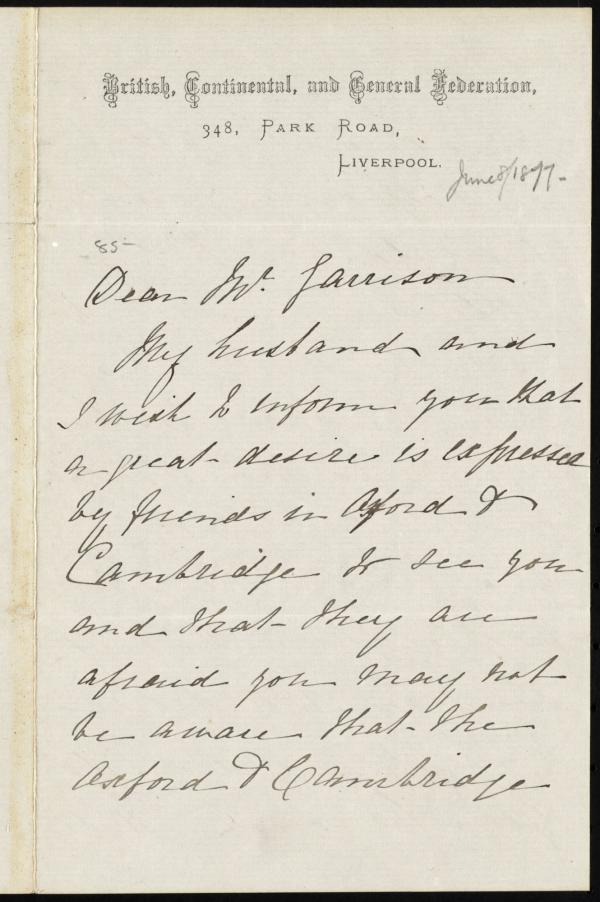 British, Continental, and General Federation,
348, Park Road,
Liverpool.
June 8/1877-
85-
Dear Mr. Garrison
My husband and
I wish to inform you that
a great desire is expressed
by friends in Oxford &
Cambridge to see you
and that they are
afraid you may not
be aware that the
Oxford & Cambridge